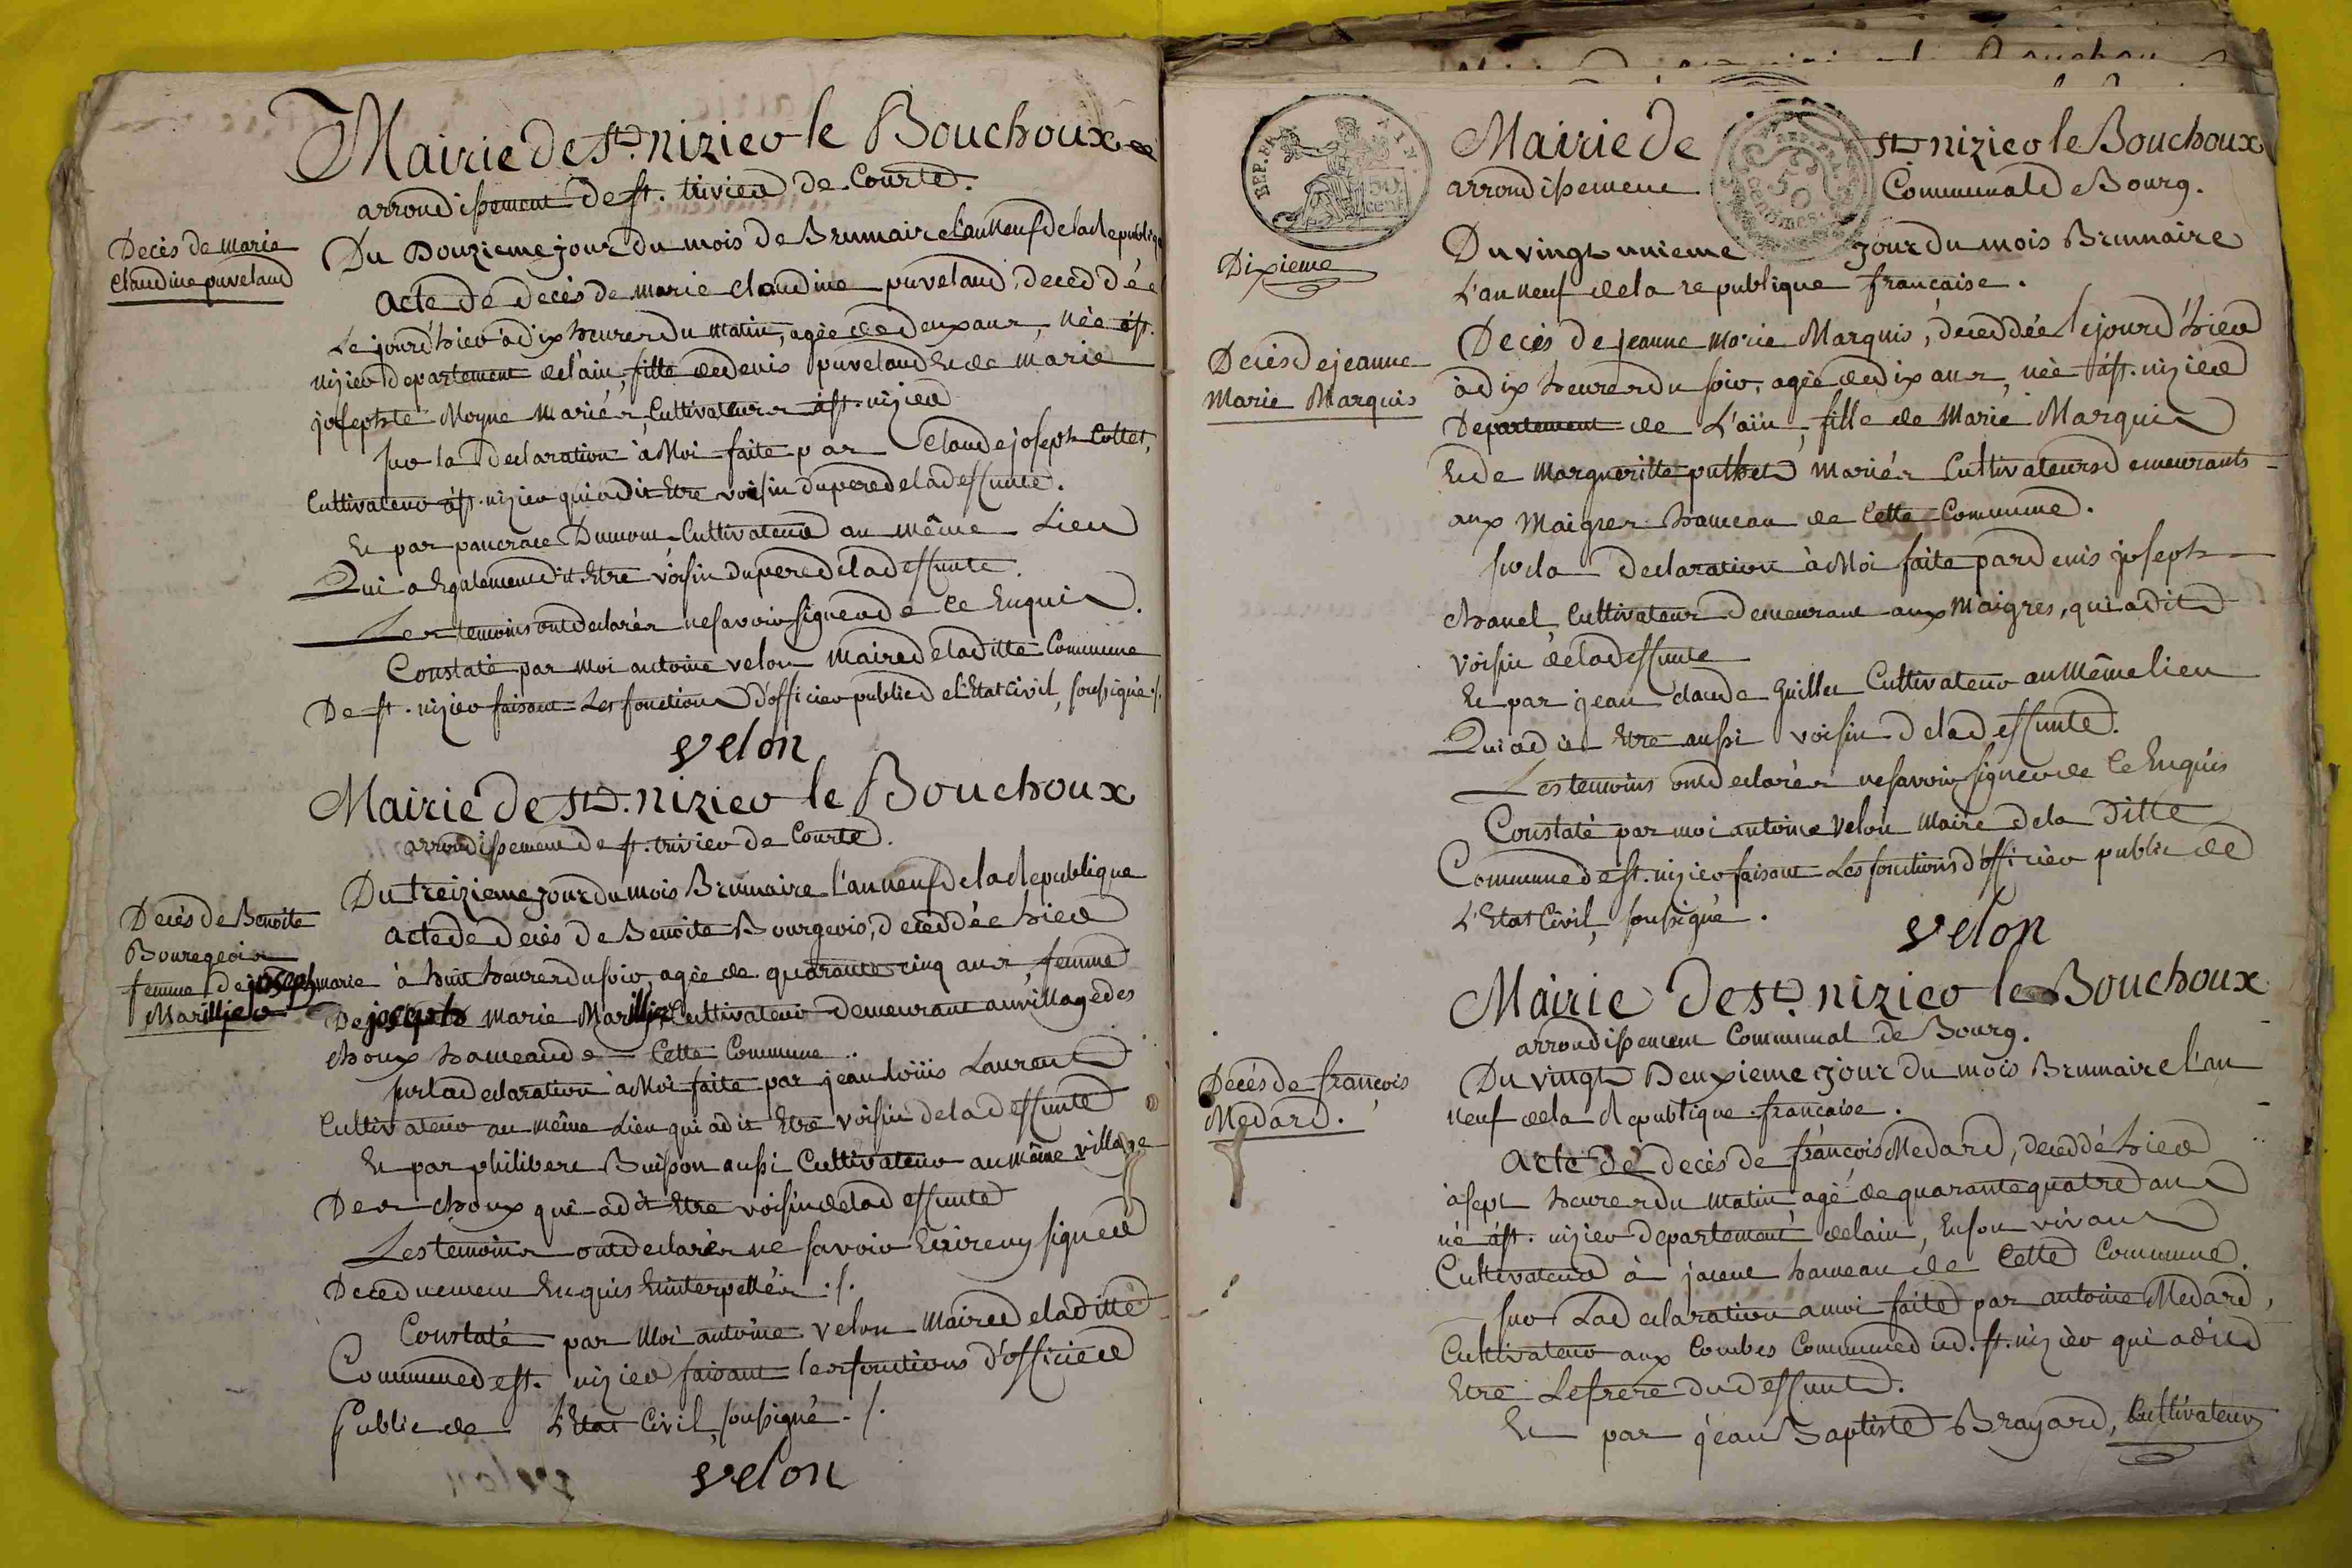 Mairie de St. nizier le Bouchoux
arrondissement de st. trivier de Courte.
Decès de marie
Claudine puveland
Du Douzieme jour du mois de Brumaire l'an neuf de la republique
Acte de decès de marie claudine puveland, deceddée
Le jourd'hier à dix heures du matin, agée de deux ans, née à st.
nizier departement de l'ain, fille de denis puveland et de marie
josephte Moyne mariés, Cultivateurs à st. nizier
sur la declaration à Moi faite par Claude joseph Collet,
Cultivateur à st. nizier qui a dit Etre voisin du pere de la deffunte.
Et par pancrace Dumont Cultivateur au même Lieu
Qui a Egalement dit Etre voisin du pere de la deffunte.
Les temoins ont declarés ne savoir signer de ce Enquis.
Constaté par moi antoine velon Maire de la ditte Commune
De st. nizier faisant Les fonctions d'officier public de l'Etat Civil, soussigné ./.
velon
Mairie de St. nizier le Bouchoux
arrondissement de st. trivier de Courte.
Decès de Benoite
Bouregeois
femme de joseph marie
Marillier
Du treizieme jour du mois Brumaire l'an neuf de la republique
Acte de decès de Benoite Bourgeois, deceddée hier
à huit heures du soir, agée de quarante cinq ans, femme
De joseph marie Marillier Cultivateur demeurant au village des
choux hameau de Cette Commune.
sur la declaration à Moi faite par jean louis Laurent
Cultivateur au même Lieu qui a dit Etre voisin de la deffunte
Et par philibert Buisson aussi Cultivateur au même village
Des choux qui a dit Etre voisin de la deffunte
Les temoins ont declarés ne savoir Ecrire ny signer
De ce duement Enquis Et interpellés ./.
Constaté par Moi antoine velon Maire de la ditte
Commune de st. nizier faisant les fonctions d'officier
public de L'Etat Civil, soussigné ./.
velon
REP. FRA
50
cent
Dixieme
Mairie de St. nizier le Bouchoux
arrondissement Communal de Bourg.
50
centimes
Du vingt unieme jour du mois Brumaire
L'an neuf de la republique française.
Decès de jeanne
Marie Marquis
Decès de jeanne marie Marquis, deceddée le jourd'hier
à dix heures du soir, agée de dix ans, née à st. nizier
Departement de L'ain, fille de Marie Marquis
Et de Margueritte puthet mariés Cultivateurs demeurants
aux Maigres hameau de Cette Commune.
sur la declaration à Moi faite par denis joseph
chanel, Cultivateur demeurant aux Maigres, qui a dit
voisin de la deffunte
Et par jean claude Guillet Cultivateur au Même lieu
Qui a dit Etre aussi voisin de la deffunte.
Les temoins ont declarés ne savoir signer de ce Enquis
Constaté par moi antoine velon Maire de la ditte
Commune de st. nizier faisant Les fonctions d'officier public de
L'Etat Civil, soussigné.
velon
Mairie de St. nizier le Bouchoux
arrondissement Communal de Bourg.
Decés de françois
Medard.
Du vingt Deuxieme jour du mois Brumaire l'an
neuf de la republique française.
Acte de decès de françois Medard, deceddé hier
à sept heures du matin, agé de quarante quatre ans
né à st. nizier departement de lain, En son vivant
Cultivateur à hameau de Cette Commune.
sur La declaration a moi faite par antoine Medard,
Cultivateur aux Combes Commune du d. st. nizier qui a dit
Etre Le frere du deffunt.
Et par jean Baptiste Brayard, Cultivateur